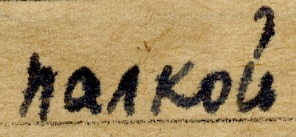 палкой